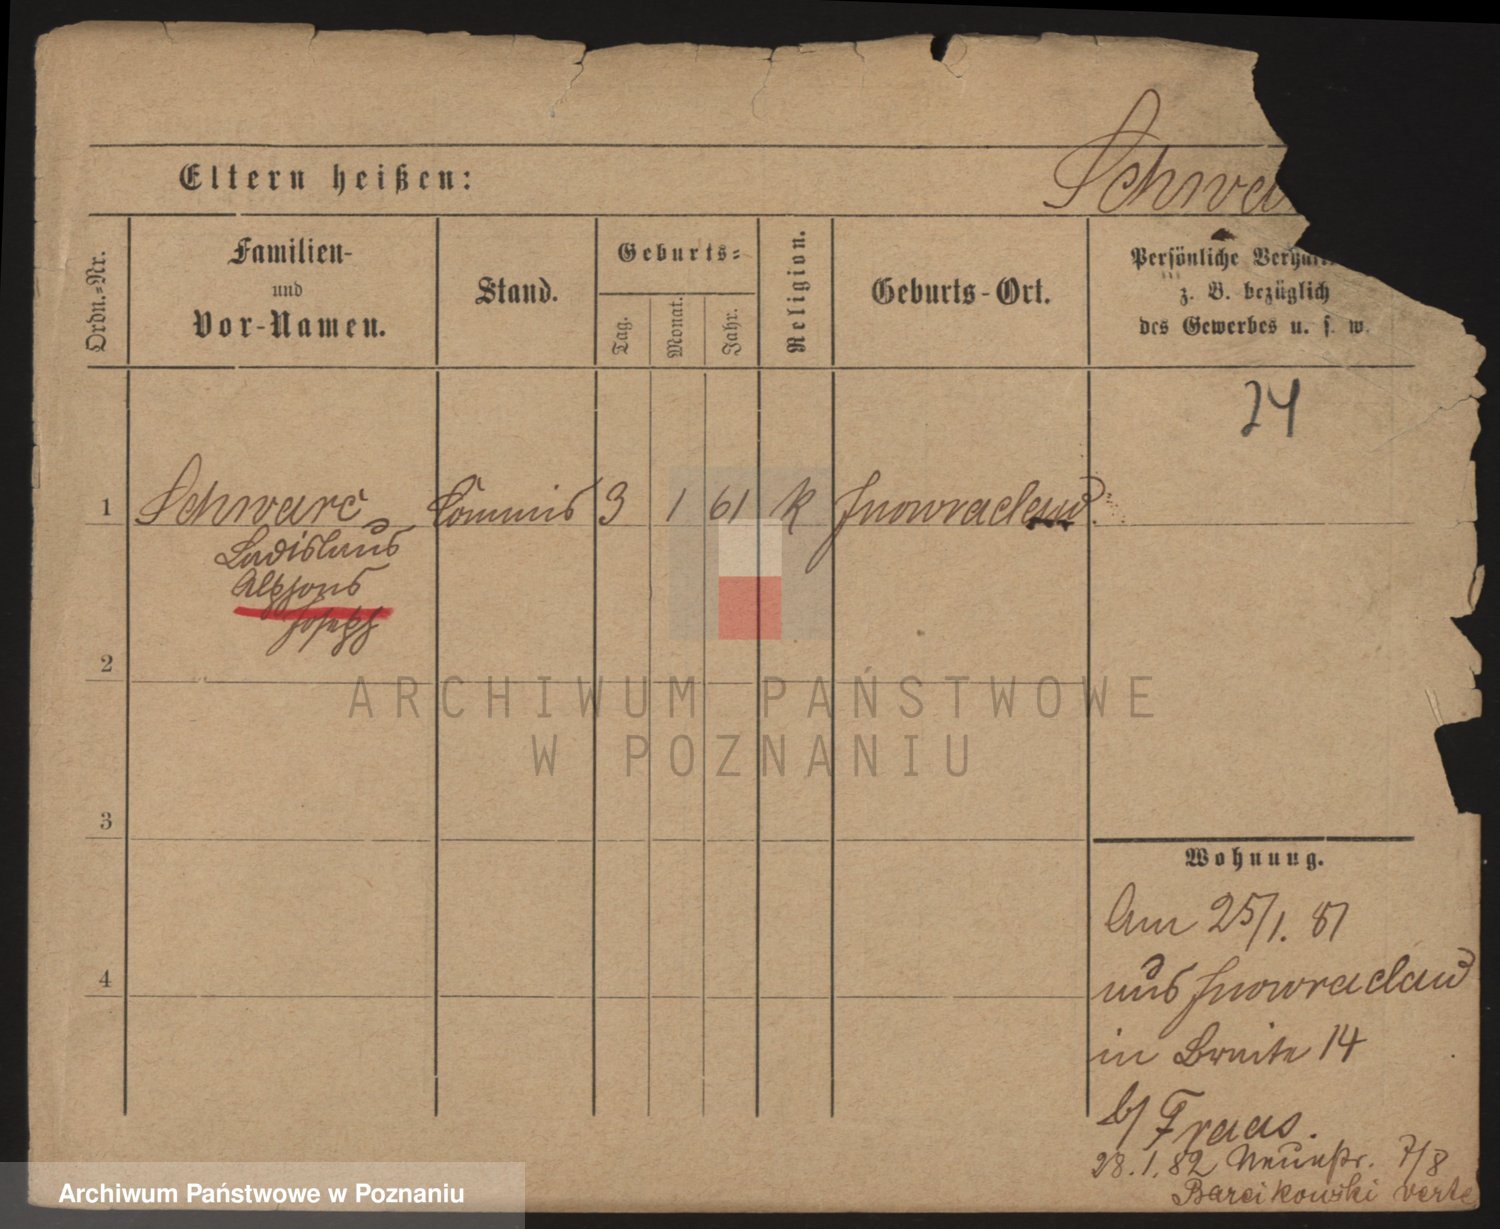 Schwa
Eltern heißen:
Ordn.-Nr.
Familien-
und
Vor-Namen.
Stand.
Geburts-
Tag.
Monat.
Jahr.
Religion.
Geburts-Ort.
Persönliche Verhält
z. B. bezüglich
des Gewerbes u. s. w.
24
1 Schwarc Commis 3 1 61 k Inowraclaw
Ladislaus
Alphons
Joseph
2
3
4
ARCHIWUM PAŃSTWOWE
W POZNANIU
Wohnung.
Am 25/1. 81
aus Inowraclaw
in Breite 14
b/ Fraas.
28.1.82 Neuestr. 7/8
Barcikowski verte
Archiwum Państwowe w Poznaniu